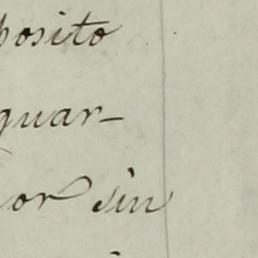 posito
guar-
or sin